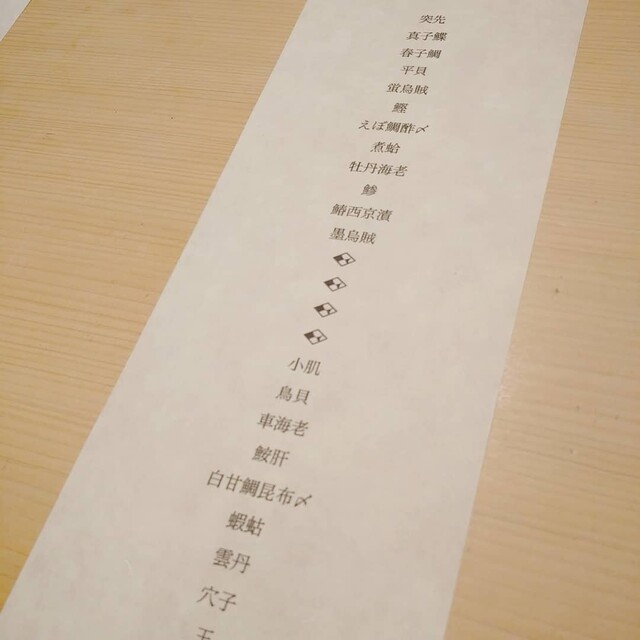 突先
真子鰈
春子鯛
平貝
蛍烏賊
鰹
えぼ鯛酢〆
煮蛤
牡丹海老
鯵
鰆西京漬
墨烏賊
小肌
鳥貝
車海老
鮟肝
白甘鯛昆布〆
蝦蛄
雲丹
穴子
玉